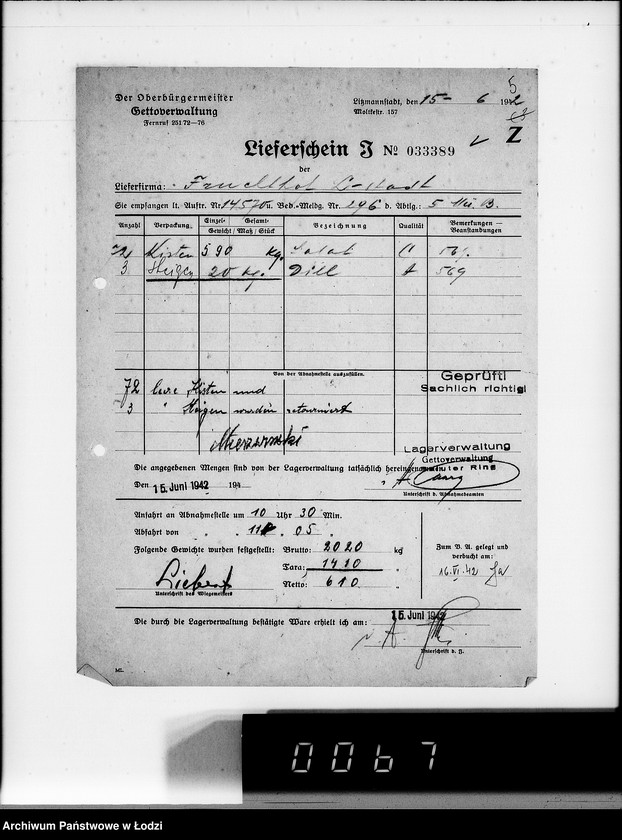 5
Der Oberbürgermeister
Gettoverwaltung
Fernruf 251 72—76
Litzmannstadt, den 15- 6 1942
Moltkestr. 157
Z
Lieferschein J № 033389
der
Lieferfirma:
Sie empfangen lt. Auftr. Nr. 14570 u. Bed.-Meldg. Nr. 296 d. Abtlg.:
Anzahl Verpackung Einzel- Gesamt- Gewicht / Maß / Stück Bezeichnung Qualität Bemerkungen — Beanstandungen
72 Kisten 590 kg. Salat
3 Steigen 20 kg. Dill A 569
Von der Abnahmestelle auszufüllen.
Geprüft!
Sachlich richtig!
72 leere Kisten und
3 " Steigen wurden retourniert
Lagerverwaltung
Gettoverwaltung
Die angegebenen Mengen sind von der Lagerverwaltung tatsächlich hereingenommen
Den 15. Juni 1942 194
Unterschrift d. Abnahmebeamten
Anfahrt an Abnahmestelle um 10 Uhr 30 Min.
Abfahrt von " 11 " 05 "
Folgende Gewichte wurden festgestellt: Brutto: 2020 kg
Tara: 1410 "
Netto: 610 "
Zum B. A. gelegt und
verbucht am:
16. VI. 42
Liebert
Unterschrift des Wiegemeisters
Die durch die Lagerverwaltung bestätigte Ware erhielt ich am: 15. Juni 1942
Unterschrift d. F.
ML.
0067
Archiwum Państwowe w Łodzi